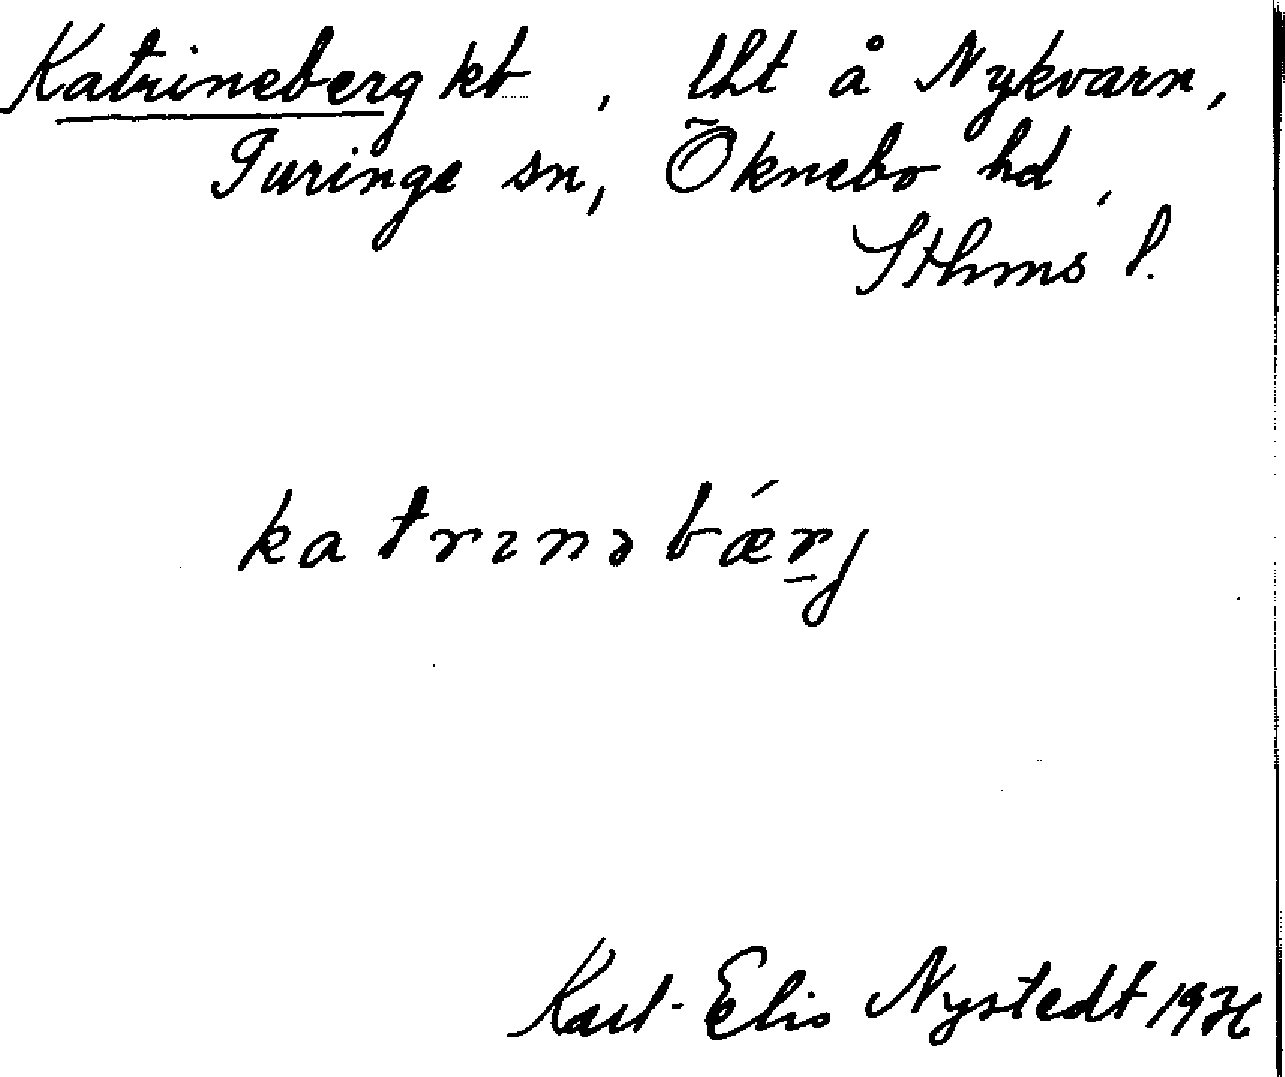 Katrineberg kt, lht å Nykvarn,
Turinge sn, Öknebo hd,
Sthms l.
katrınəbǽr̠j
Karl-Elis Nystedt 1936